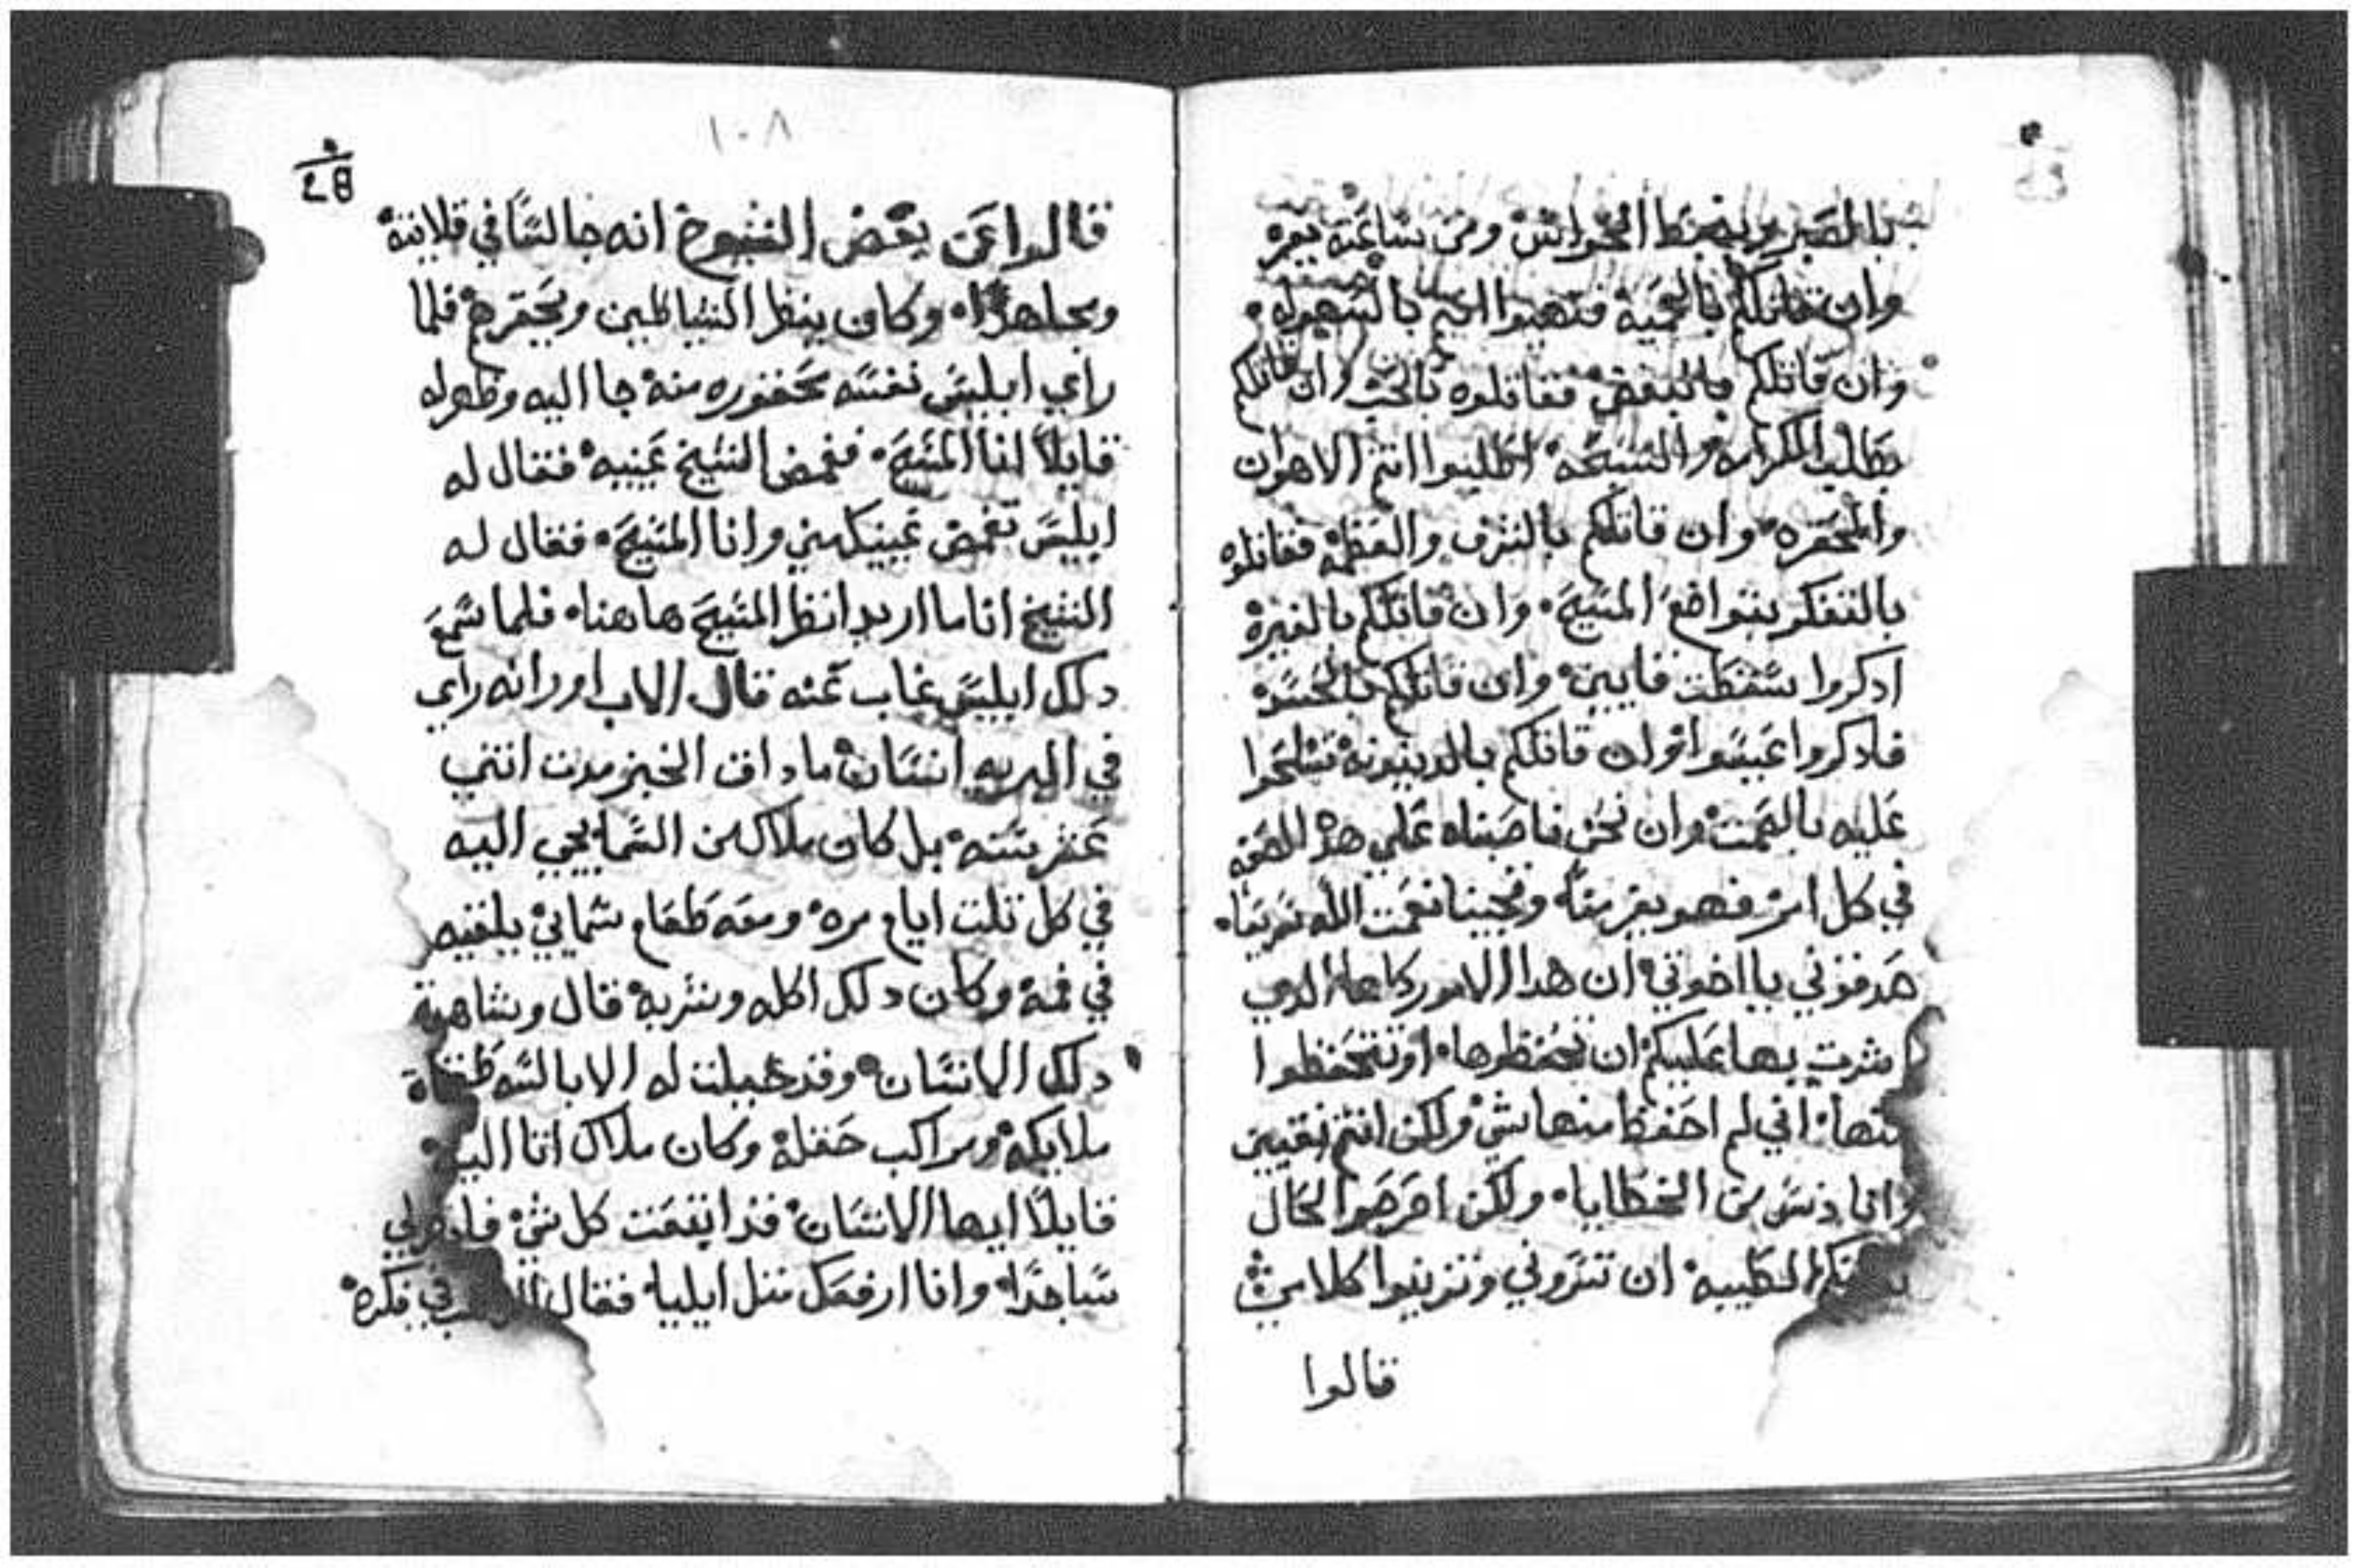 بالصبر وبضبط الحواس ومن ساعته يفر
وان قاتلكم بالمحبه فتهيوا اليهم بالسهوله
وان قاتلكم بالبغض فقاتلوه بالحب وان قاتلكم
بطلب الكرامه والسبحه اطلبوا انتم الاهوان
والمحقره وان قاتلكم بالشرف والعظمه فقاتلوه
بالتفكر بتواضع المسيح وان قاتلكم بالغيره
ادكروا سقطت قايين وان قاتلكم بالحسد
فادكروا عيسوا وان قاتلكم بالدينونه تسلحوا
عليه بالصمت وان نحن ناصبناه علي هده الصفه
في كل امر فهو يفر منا وتجينا نعمت الله سريعا
صدقوني يا اخوتي ان هدا الامور كلها الدي
اشرت بها عليكم ان تحفظوها او تتحفظوا
منها اني لم احفظ منها شي ولكن انتم نقيين
وانا دنس من الخطايا ولكن افرصوا الحال
الطيبه ان تستروني وتزينوا كلامي
قالوا
١٠٨
قالوا عن بعض الشيوخ انه جالسا في قلايته
ومجاهدا وكان ينظر الشياطين ويحقرهم فلما
راي ابليس نفسه محقوره منه جا اليه وظهر له
قايلا انا المسيح فغمض الشيخ عينيه فقال له
ابليس تغمض عينيك مني وانا المسيح فقال له
الشيخ انا ما اريد انظر المسيح هاهنا فلما سمع
دلك ابليس غاب عنه قال الاب اور انه راي
في البريه انسان ما داق الخبز مدت اتني
عشر سنه بل كان ملاك من السما يجي اليه
في كل تلت ايام مره ومعه طعام سماني يلقيه
في فمه وكان دلك اكله وشربه قال وشاهدة
دلك الانسان وقد خيلت له الابالسه طغاة
ملايكه ومراكب حفله وكان ملاك اتا اليه
قايلا ايها الانسان قد اتقنت كل شي فاسجد لي
ساجدا وانا ارفعك متل ايليا فقال في فكره